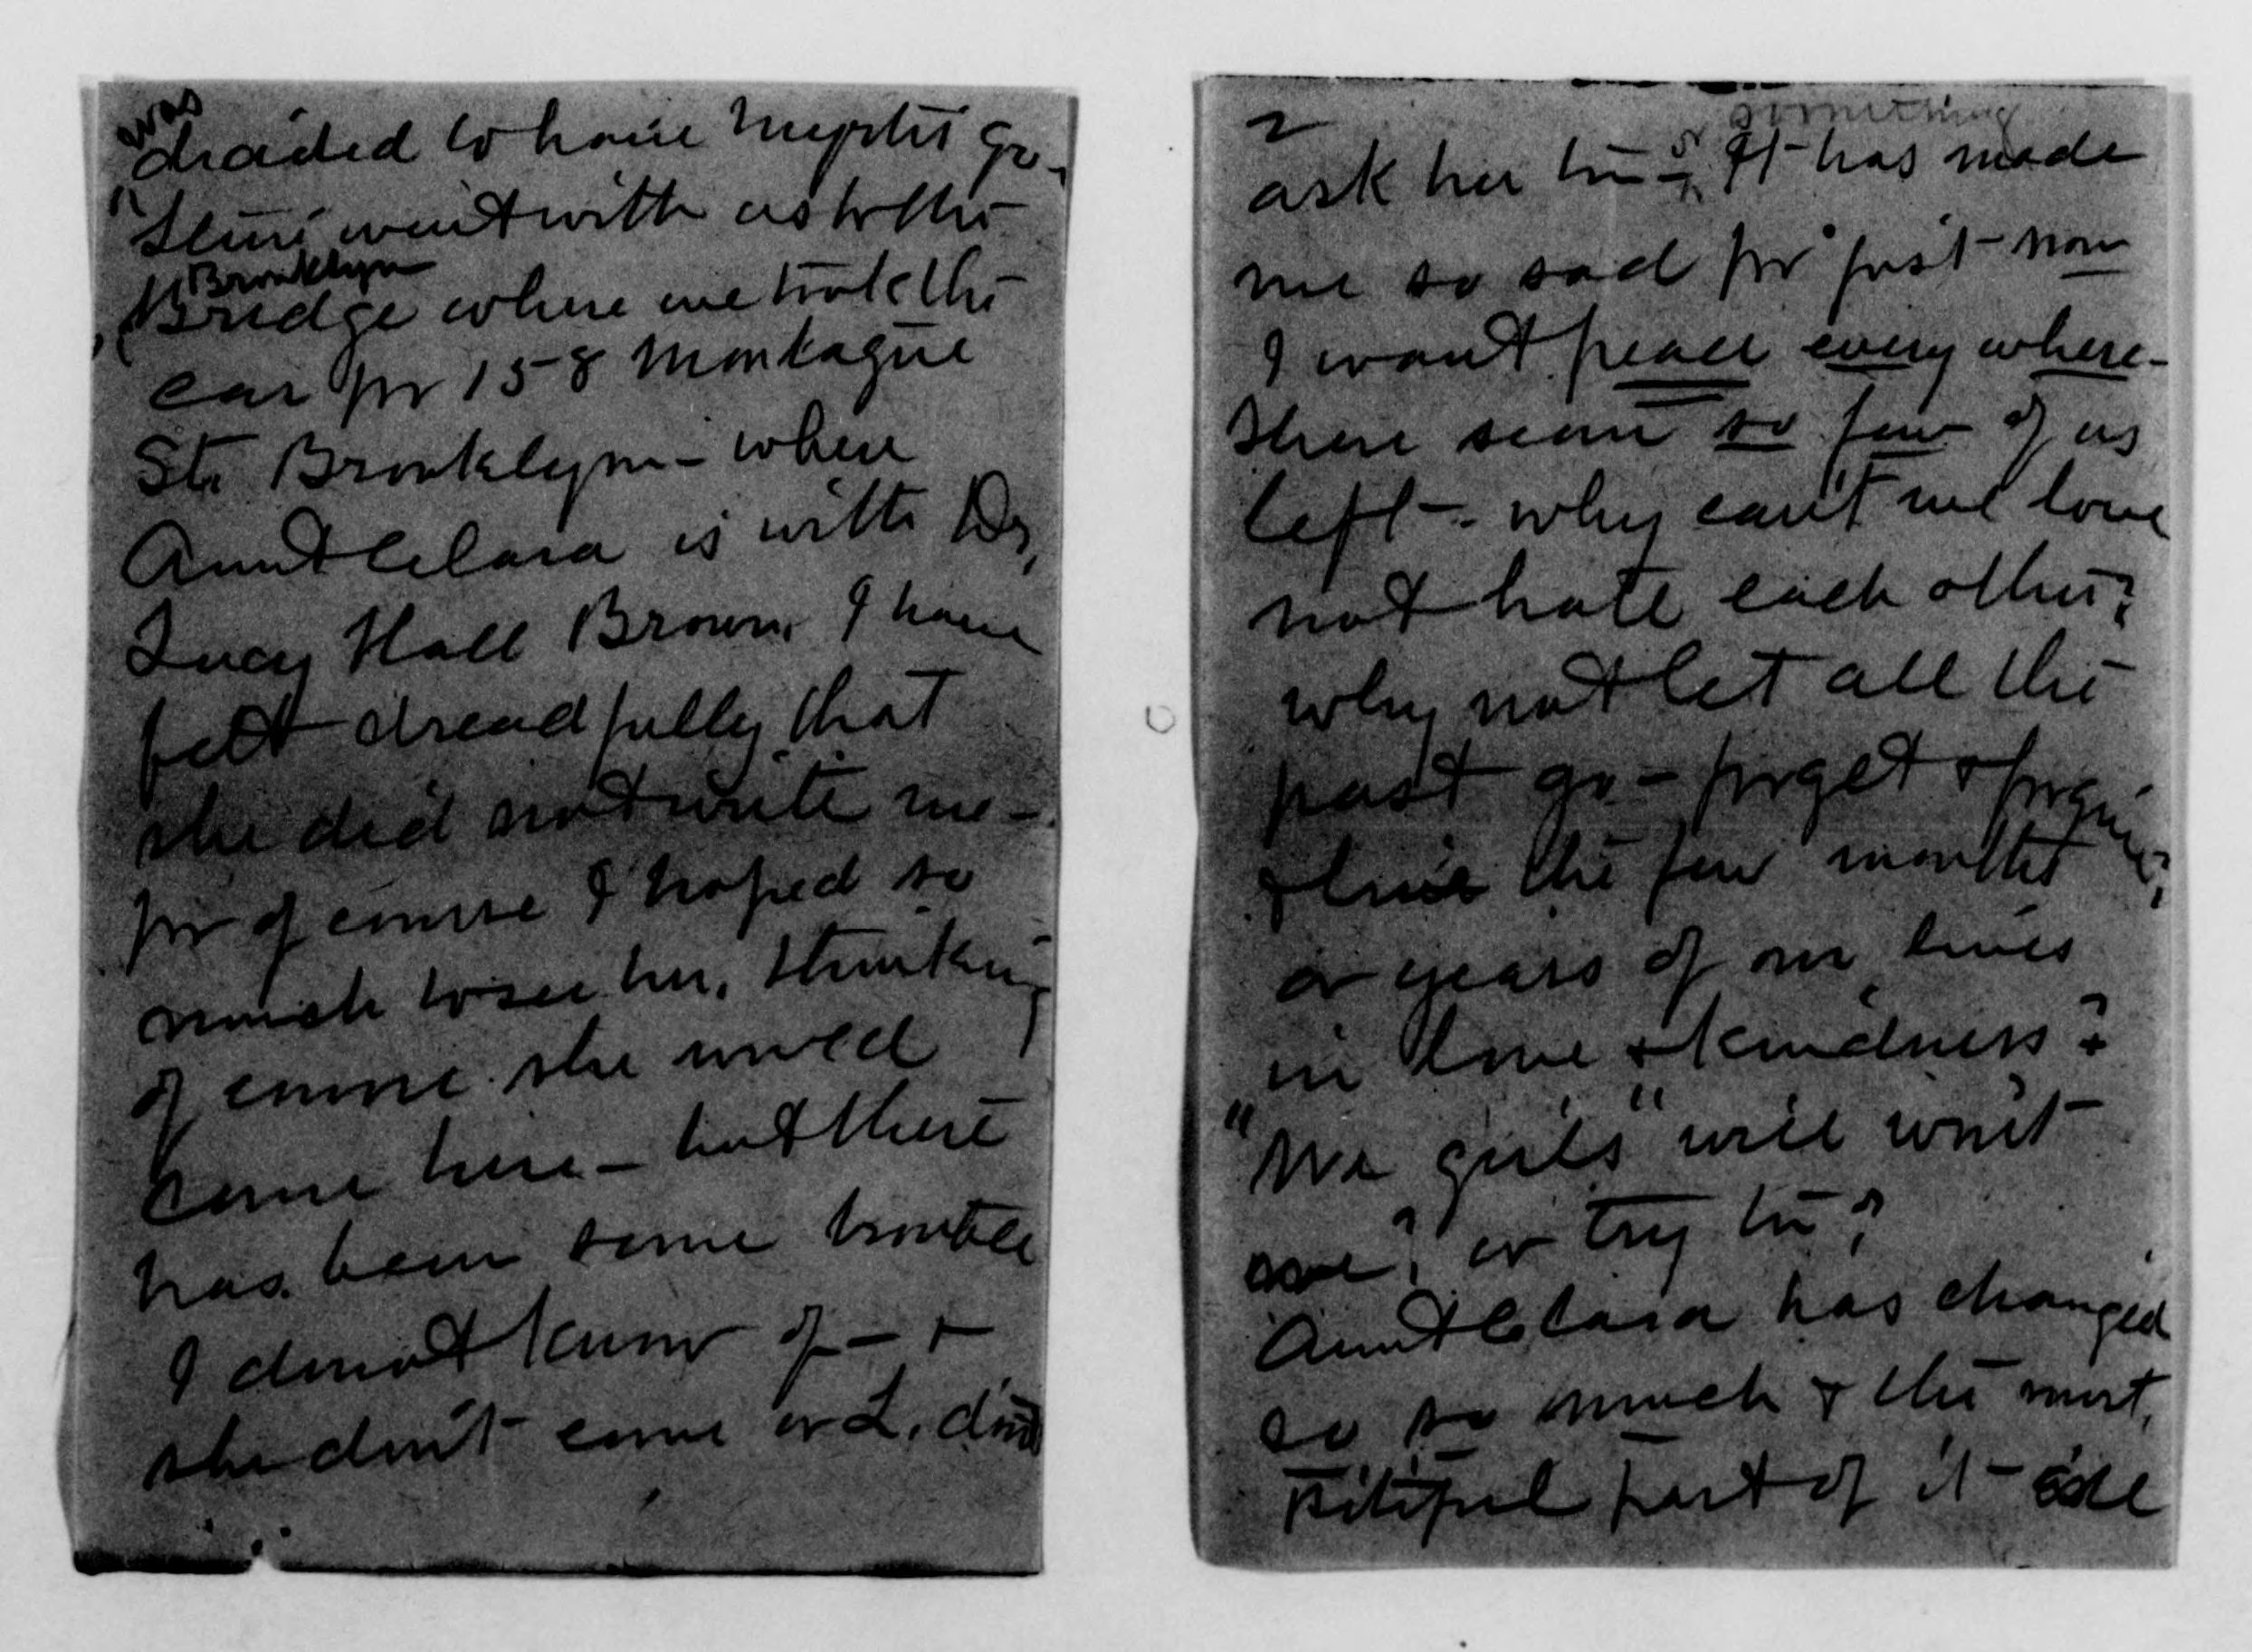 was
decided to have Myrtis go.
went with us to the
Brooklyn
Bridge where we took the
car for 158 Montague
St. Brooklyn - where
Aunt Clara is with Dr.
Lucy Hall Brown. I have
felt dreadfully that
she did not write me -
for of course I hoped so
much to see her, thinking
of course she would
come here - but there
has been some trouble
I donot know of - &
she don't come or L. don't
2
something
ask her to - It has made
me so sad for just now
I want peace every where -
There seem so few of us
left - why can't we love
not hate each other?
why not let all the
past go - forget & forgive?
& live the few months
or years of our lives
in love & kindness?
"We girls" will won't
we? or try to?
Aunt Clara has changed
so so much & the most
pitiful part of it